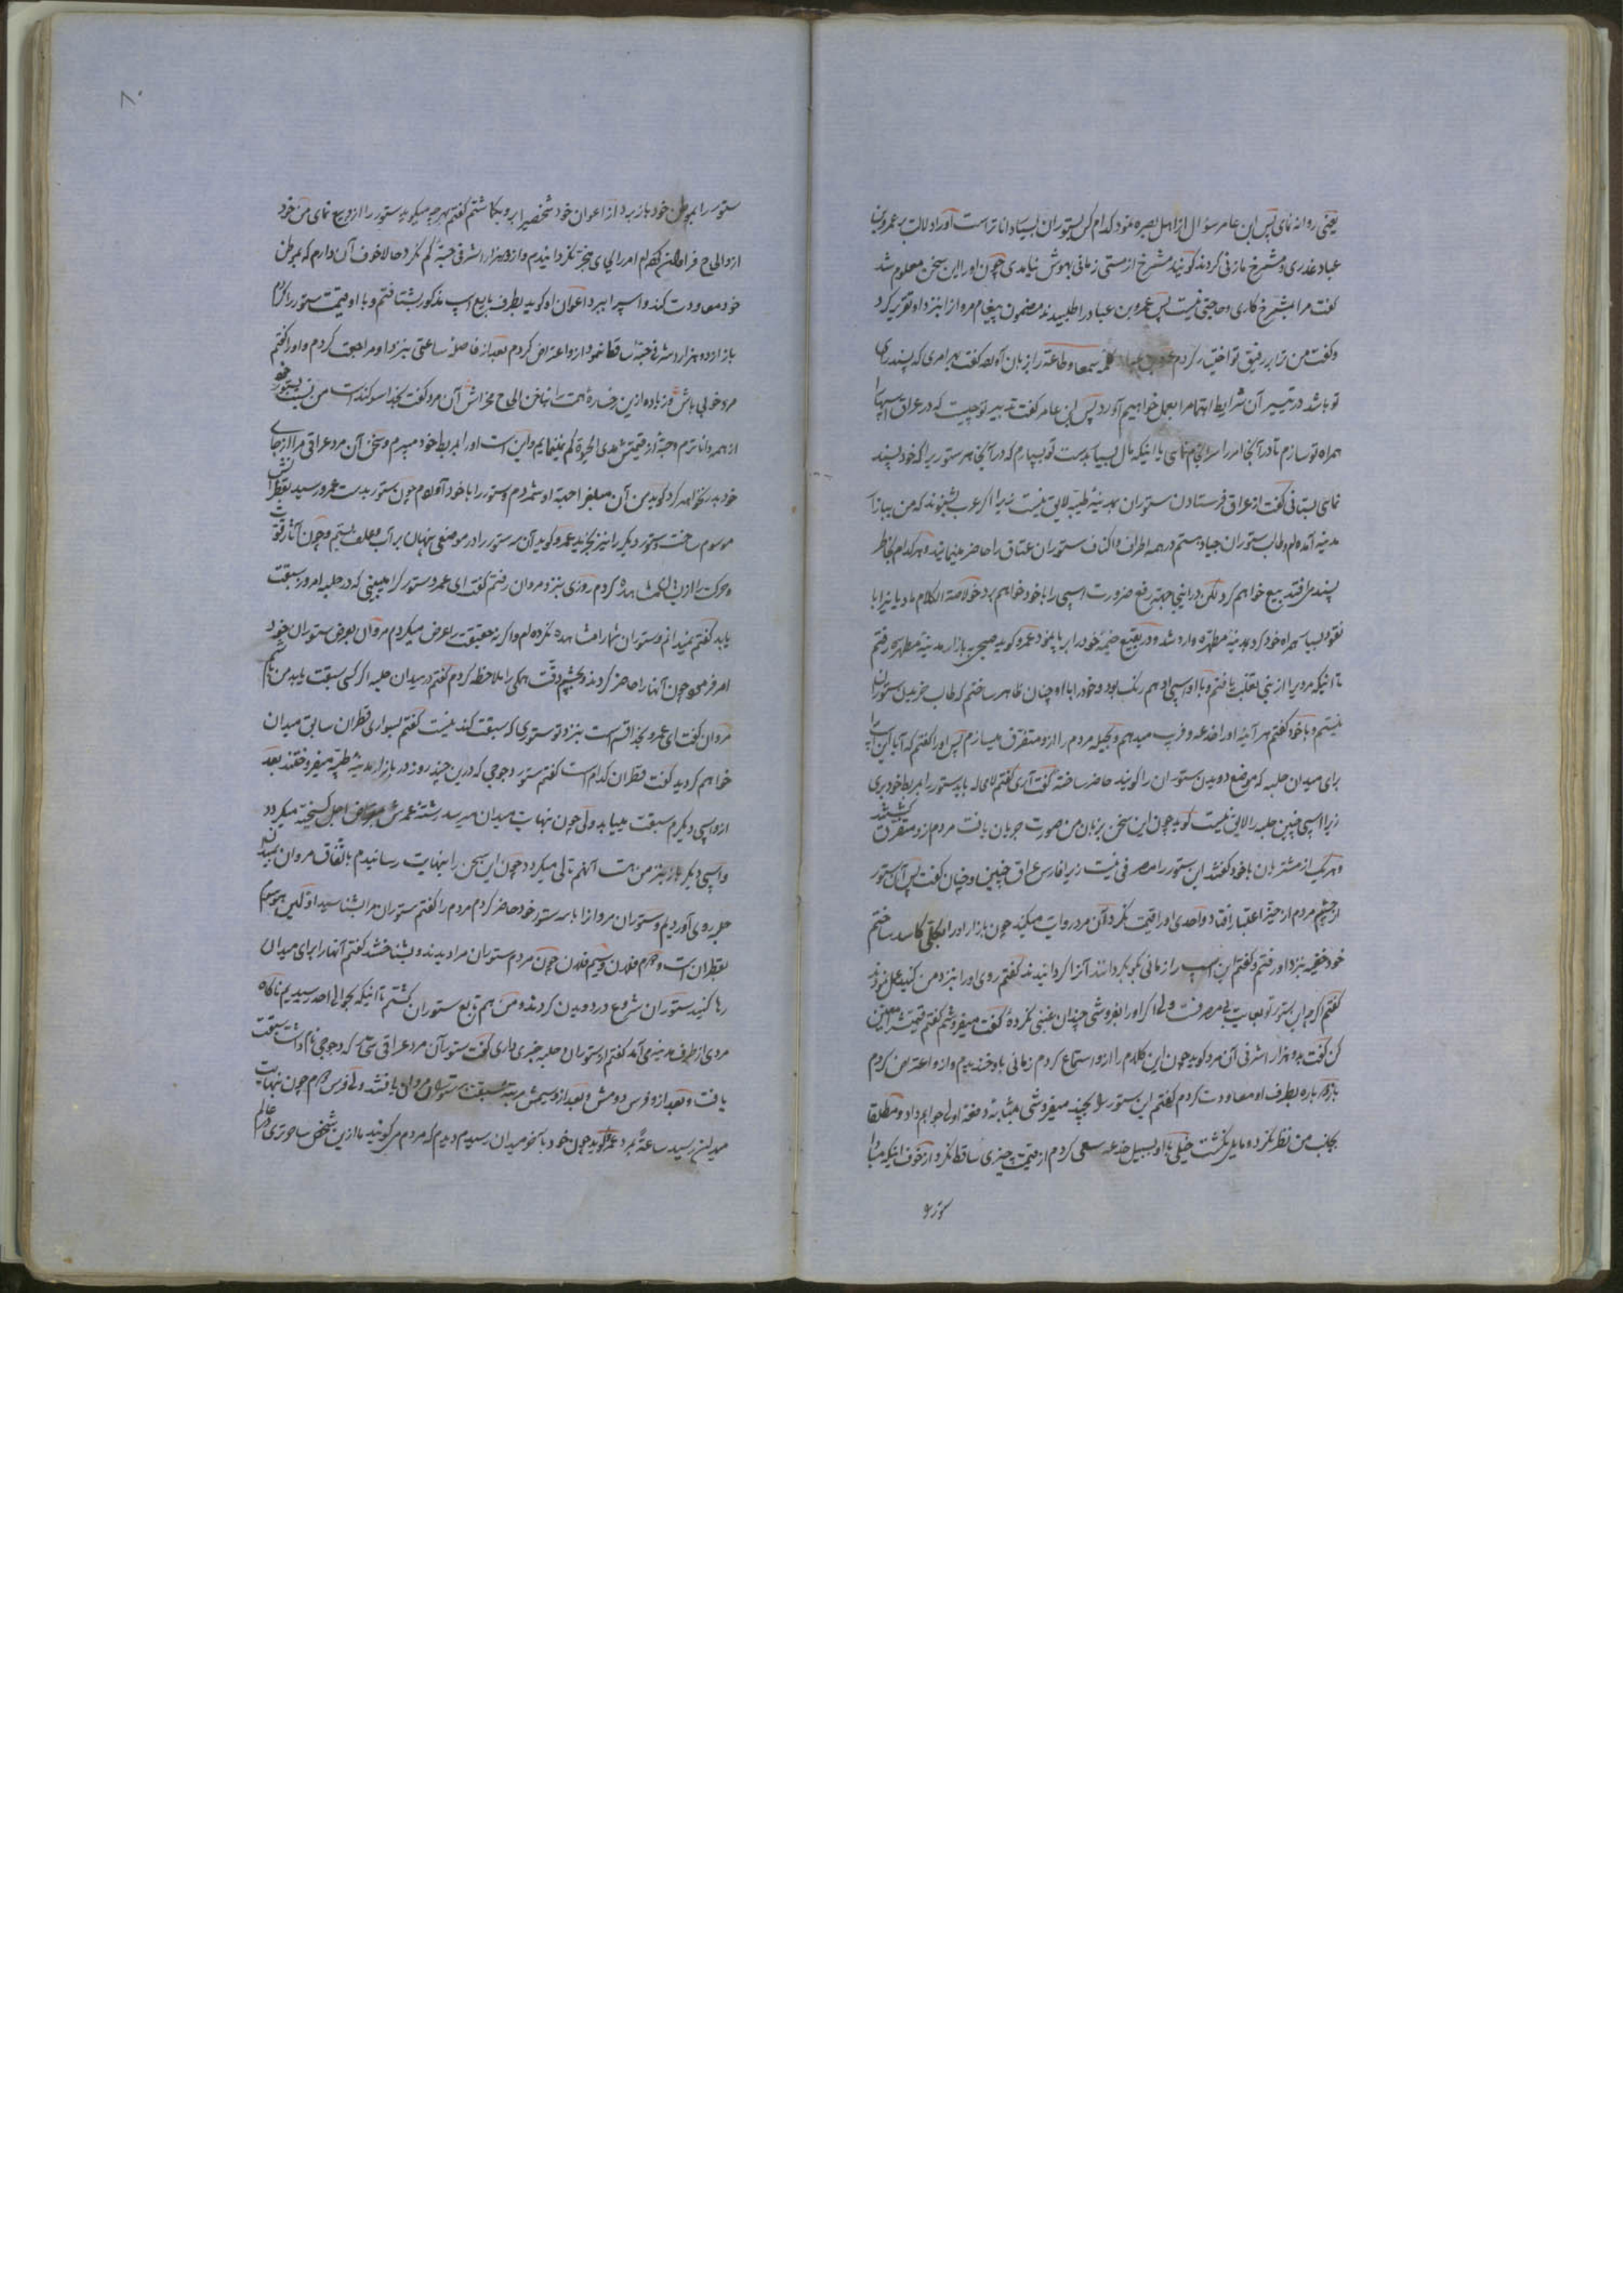 یعنی روانه نمای پس ابن عامر سؤال از اهل بصره نمود کدام کس بستوران بسیار دانا تر است او را دلالت بعمرو بن
عباد غدری و مشرخ مازنی کردند گویند مشرخ از مستی زمانی بهوش نیامدی چون او را این سخن معلوم شد
گفت مرا بمشرخ کاری و حاجتی نیست پس عمرو بن عباد را طلبیدند مضمون پیغام مروانرا بنزد او تقریر کرد
و گفت من ترا بر رفیق تو اختیار کردم کلمه سمعا و طاعة را بر زبان آورد گفت بهر امری که پسند رای
تو باشد در تیسیر آن شرایط اهتمام را بعمل خواهیم آورد پس ابن عامر گفت تدبیر تو چیست که در عراق اسپها
همراه تو سازم تا در آنجا امر را سرانجام نمای یا اینکه مال بسیار بدست تو بسپارم که در آنجا هر ستوری را که خود پسند
نمای بستانی گفت از عراق فرستادن ستوران بمدینهٔ طیبه لایق نیست زیرا اگر عرب بشنوند که من
مدینه آمده‌ام و طالب ستوران جیاد هستم در همه اطراف و اکناف ستوران عتاق را حاضر مینمایند و هر کدام بخاطر
پسند من افتد بیع خواهم کرد لکن در اینجا جهة رفع ضرورت اسپی را با خود خواهم برد خلاصة الکلام مادیانیرا با
نقود بسیار همراه خود کرد بمدینهٔ مطهره وارد شد و در بقیع خیمهٔ خود را برپا نمود عمرو گوید صبحی ببازار مدینهٔ مطهره رفتم
تا اینکه مردیرا از بنی یافتم و با او اسپی ادهم رنگ بود و خود را با او چنان ظاهر ساختم که طالب خریدن ستوران
نیستم و با خود گفتم هر آینه او را خدعه و فریب میدهم و بحیله مردم را از او متفرق میسازم پس او را گفتم که آیا این اسپ را
برای میدان حلبه که موضع دویدن ستوران را گویند حاضر ساخته گفت آری گفتم لای لا باید ستور را بمربط خود بری
زیرا اسپی چنین حلبه را لایق نیست گوید چون این سخن بر زبان من صورت جریان یافت مردم از او متفرق گشتند
و هر یک از مشتریان با خود گفتند این ستور را مصرفی نیست زیرا فارس عراق چنین و چنان گفت پس آن ستور
از چشم مردم از حیز اعتبار افتاد و احدی او را قیمت نکرد آن مرد روایت میکند چون بازار او را بکلی کاسد ساختم
خود خفیه بنزد او رفتم و گفتم این اسپ را زمانی بگو بگردانند آنرا گردانیدند گفتم روی او را بنزد من کنید عمل نمودند
گفتم اگر چه این ستور تو بغایت بی مصرفست ولی اگر او را بفروشی چندان غبنی نکرده گفت میفروشم گفتم قیمتش را معین
کن گفت بدو هزار اشرفی آن مرد گوید چون این کلام را از او استماع کردم زمانی با خود خندیدم و از او اعتراض کردم
باز دوباره بطرف او معاودت کردم گفتم این ستور را بچند میفروشی بمثابهٔ دفعهٔ اولی جوابم داد و مطلقا
بجانب من نظر نکرد و مایل نگشت خیلی با او بسبیل خدعه سعی کردم از قیمت چیزی ساقط نکرد از خوف اینکه مبادا
ستور را
۸۰
ستور را بموطن خود باز برد از اعوان خود شخصیرا بر او بگماشتم گفتم بهرچه میگوید ستور را از او بیع نمای من خود
از دو هزار اشرفی حبه کم نکرد حالا خوف آن دارم که بموطن
خود معاودت کند و اسپ را ببرد اعوان او گوید بطرف بایع اسپ مذکور بشتافتم و با او قیمت ستور را
باز از دو هزار اشرفی حبه ساقط ننمود از او اعتراض کردم بعد از فاصلهٔ ساعتی بنزد او مراجعت کردم و او را گفتم
مرد خوبی باش و زیاده ازین رخسارهٔ همت را بناخن الحاح مخراش آن مرد گفت بخدا سوگند است من بنسبت بستور خود
از همه داناترم و حبه از قیمتش مدی الحیوة کم نمینمایم و این است او را بمربط خود میبرم و سخن آن مرد عراقی مرا از جای
خود بدر نخواهد کرد گوید من آن مبلغ را جهة او شمردم و ستور را با خود آوردم چون ستور بدست عمرو رسید بقطرانش
موسوم ساخت و ستور دیگر را نیز بخرید عمرو گوید آن هر دو ستور را در موضعی پنهان بر آب و علف بستیم و چون آثار قوت
و حرکت را از ایشان مشاهده کردم روزی بنزد مروان رفتم گفت ای عمرو ستور کرا میبینی که در حلبه امروز سبقت
یابد گفتم نمیدانم و ستوران شما را مشاهده نکرده‌ام و اگر نه حقیقت را عرض میکردم مروان بعرض ستوران خود
امر فرمود چون آنها را حاضر کردند و بچشم دقت همگی را ملاحظه کردم گفتم در میدان حلبه اگر کسی سبقت یابد من
مروان گفت ای عمرو بخدا قسم است بنزد تو ستوری که سبقت کند نیست گفتم بسواری قطران سابق میدان
خواهم گردید گفت قطران کدام است گفتم ستور دجوجی که درین چند روز در بازار مدینهٔ طیبه میفروختند بعد
از او اسپی دیگرم سبقت مییابد ولی چون بنهایت میدان میرسد رشتهٔ عمرش بمقراض اجل گسیخته میگردد
و اسپی دیگر باز بنزد من هست آنهم تالی میگردد چون این سخن را بنهایت رسانیدم باتفاق مروان بمیدان
حلبه روی آوردیم و ستوران مروان را با سه ستور خود حاضر کردم مردم را گفتم ستوران مرا بشناسید اولین موسوم
بقطران است و دوم فلان و سیم فلان چون مردم ستوران مرا دیدند و بشناختند گفتم آنها را برای میدان
رها کنید ستوران شروع در دویدن کردند و من هم تابع ستوران گشتم تا اینکه بحوالی احد رسیدیم ناگاه
مردی از طرف مدینه می آمد گفتم از ستوران حلبه خبری داری گفت ستور آن مرد عراقی که دجوجی نام داشت سبقت
یافت و بعد از او فرس دومش و بعد از او سیمش مرتبهٔ سبقت بستوران مروان یافتند ولی فرس دوم چون بنهایت
میدان رسید ساعة بمرد عمرو گوید چون خود بآخر میدان رسیدم دیدم که مردم میگویند ما ازین شخص ساحرتری در عالم